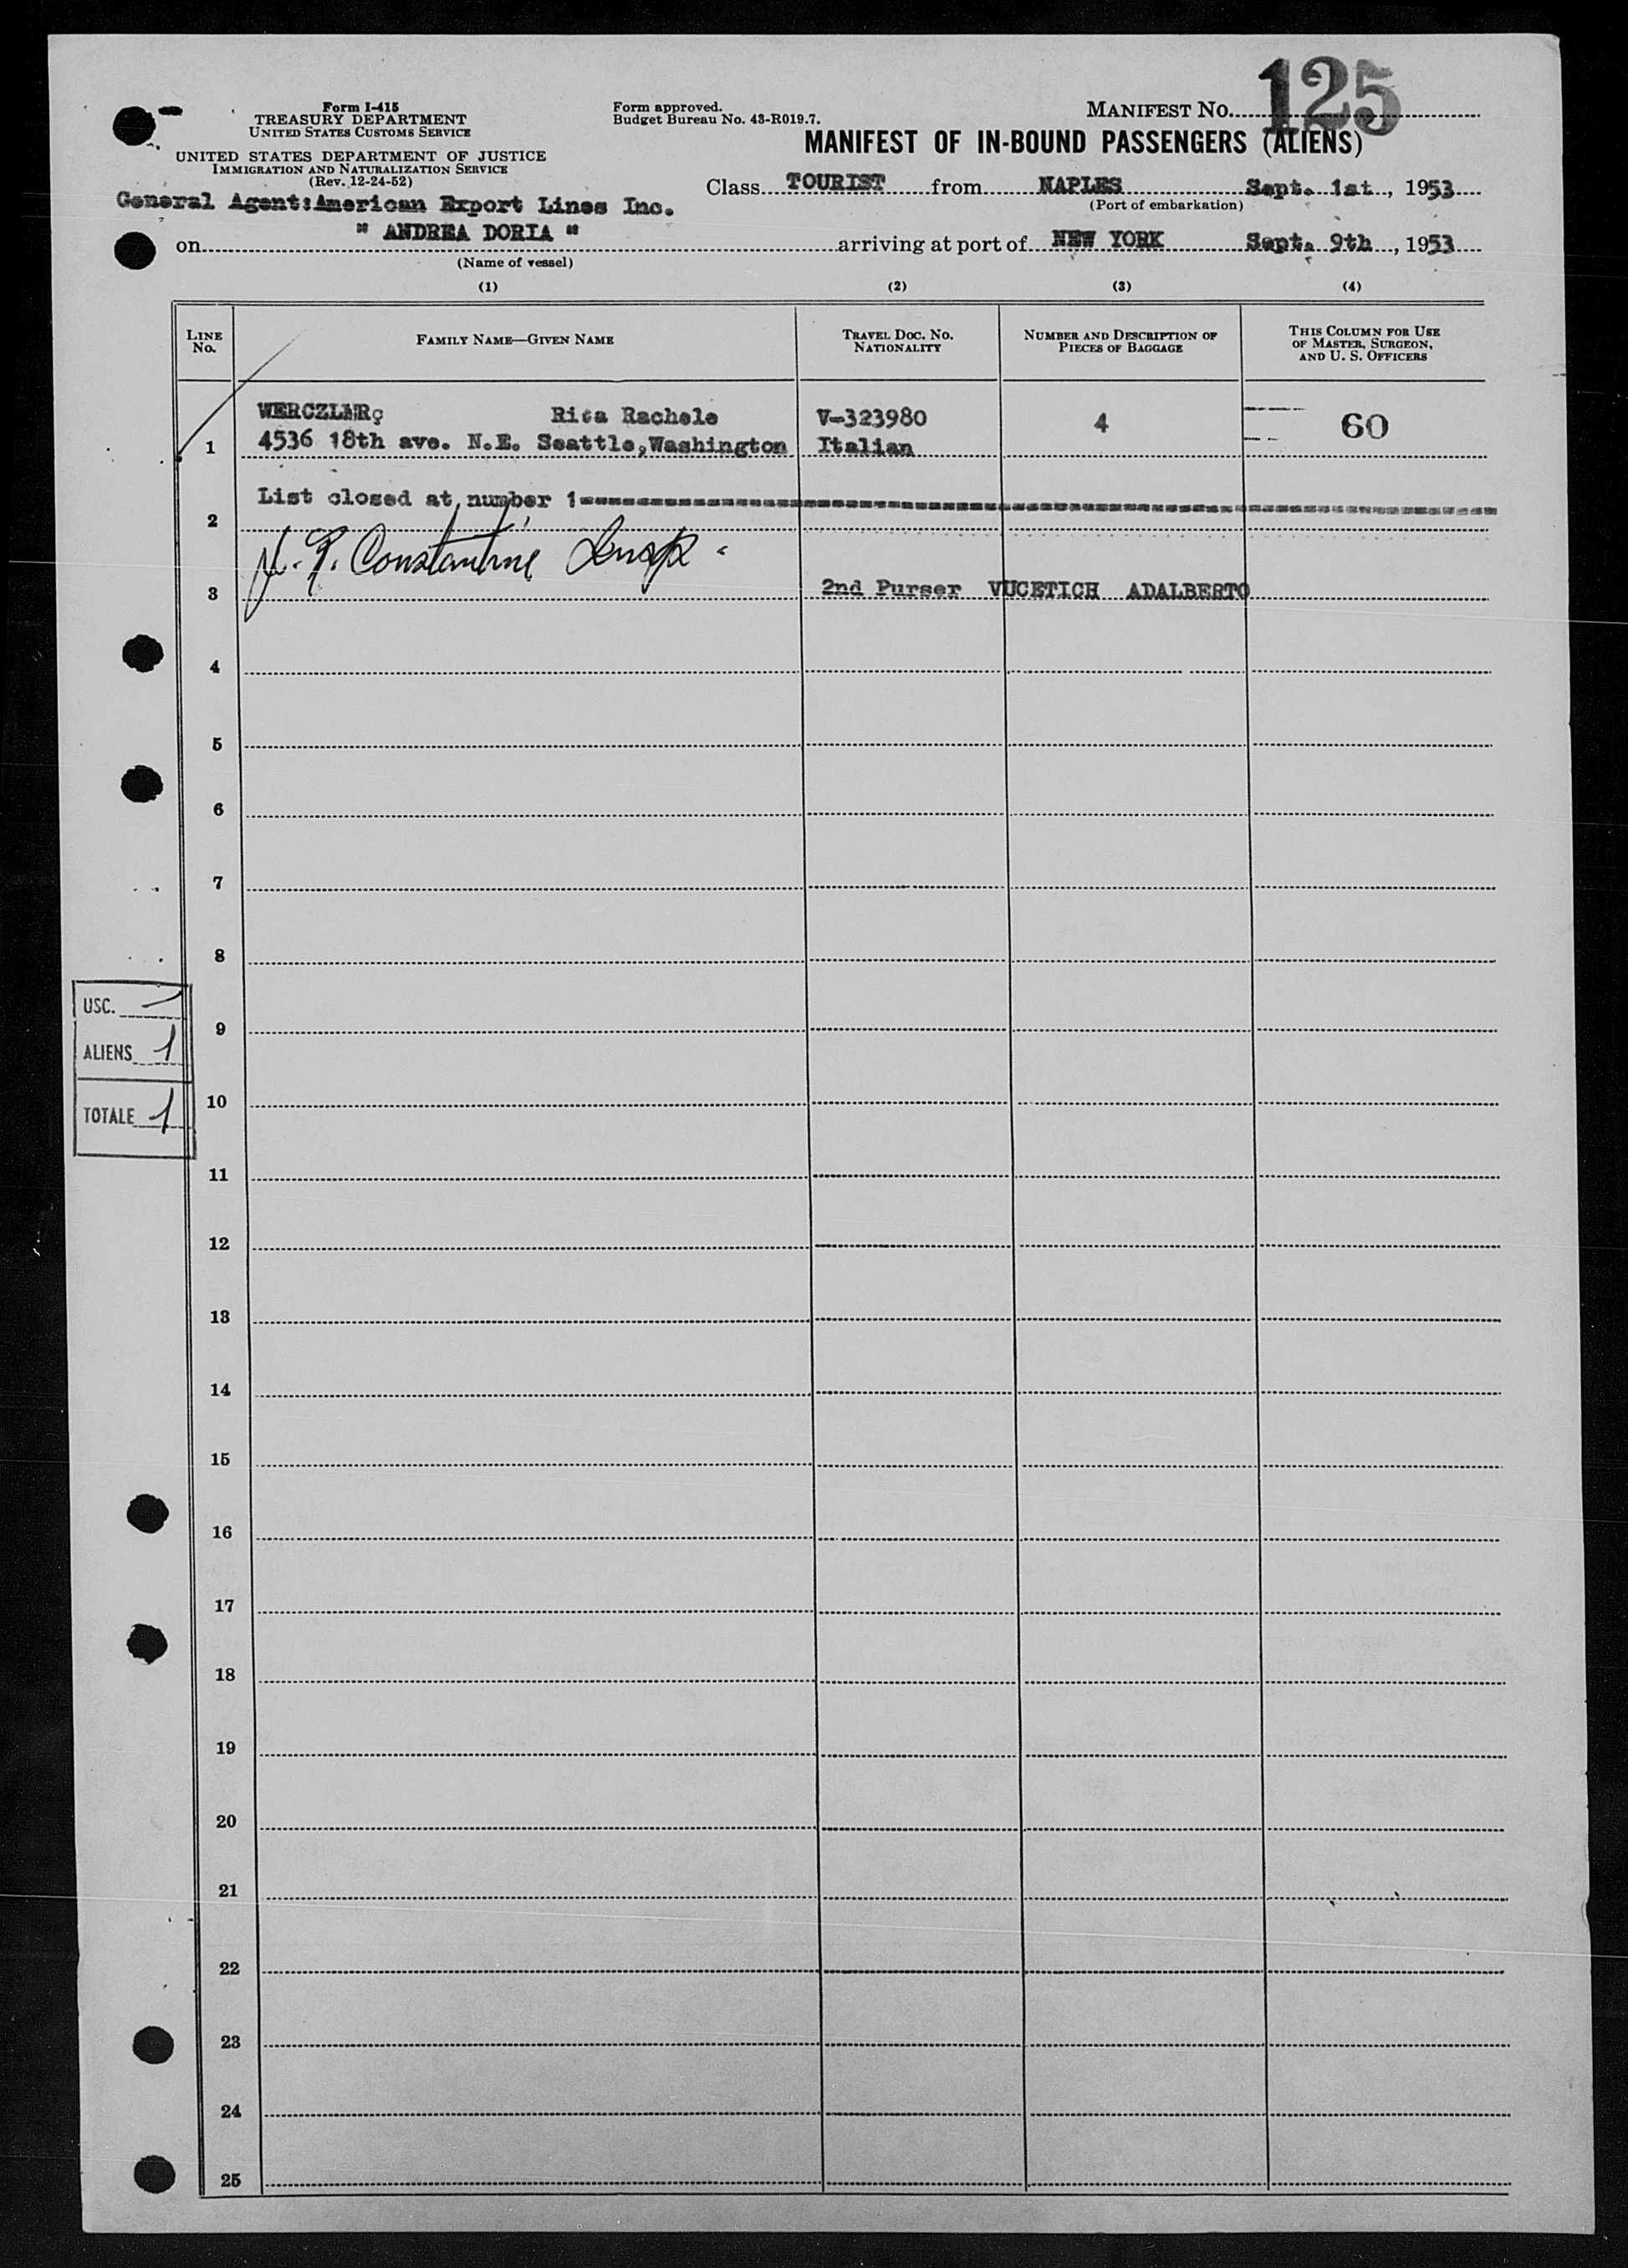 125
Form I-415
TREASURY DEPARTMENT
UNITED STATES CUSTOMS SERVICE
UNITED STATES DEPARTMENT OF JUSTICE
IMMIGRATION AND NATURALIZATION SERVICE
(Rev. 12-24-52)
Form approved.
Budget Bureau No. 43-R019.7.
MANIFEST NO.
MANIFEST OF IN-BOUND PASSENGERS (ALIENS)
Class TOURIST from NAPLES Sept. 1st, 1953
(Port of embarkation)
General Agent:American Export Lines Inc.
on " ANDREA DORIA " arriving at port of NEW YORK Sept. 9th, 1953
(Name of vessel)
(1) (2) (3) (4)
LINE No. FAMILY NAME—GIVEN NAME TRAVEL DOC. NO. NATIONALITY NUMBER AND DESCRIPTION OF PIECES OF BAGGAGE THIS COLUMN FOR USE OF MASTER, SURGEON, AND U. S. OFFICERS
Rita Rachele V-323980 4 60
1 4536 18th ave. N.E. Seattle,Washington Italian
List closed at number 1
2
Constantine
3 2nd Purser VUCETICH ADALBERTO
4
5
6
7
8
USC. —
9
ALIENS 1
10
TOTALE 1
11
12
13
14
15
16
17
18
19
20
21
22
23
24
25